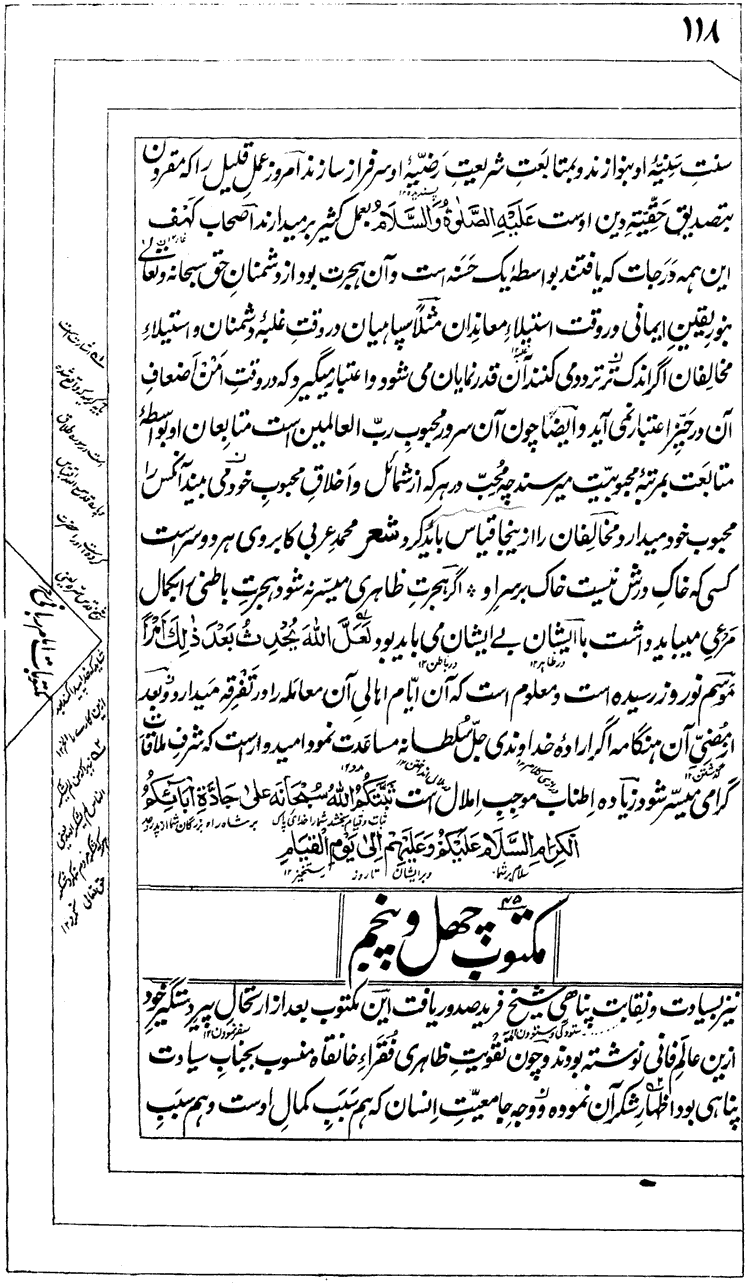 ۱۱۸
سنتِ سَنِیّۂ او بنوازند و بمتابعتِ شریعتِ رَضِیّۂ او سرفراز سازند امروز عملِ قلیل را که مقرون
بتصدیقِ حقیّتِ دین اوست عَلَیْهِ الصَّلٰوةُ وَالسَّلَامُ بعملِ کثیر برمیدارند اصحابِ کهف
این همه درجات که یافتند بواسطۂ یک حسنه است و آن هجرت بود از دشمنانِ حق سبحانه وتعالیٰ
بنورِ یقینِ ایمانی در وقت استیلاءِ معاندان مثلاً سپاهیان در وقتِ غلبۂ دشمنان و استیلاءِ
مخالفان اگر اندک تردد می کنند آن قدر نمایان می شود و اعتبار میگیرد که در وقتِ اَمن اَضعافِ
آن در حیّزِ اعتبار نمی آید و ایضاً چون آن سرور محبوبِ ربّ العالمین است متابعان او بواسطۂ
متابعت بمرتبۂ محبوبیت میرسند چه محبّ در هر که از شمائل و اخلاقِ محبوب خود می بیند آنکس را
محبوبِ خود میدارد و مخالفان را ازینجا قیاس باید کرد شعر محمد عربی کابروی هر دو سراست
کسی که خاکِ درش نیست خاک بر سرِ او * اگر هجرتِ ظاهری میسر نه شود هجرتِ باطنی بکمال
مَرعی میباید داشت با ایشان بے ایشان می باید بود لَعَلَّ اللّٰهَ یُحْدِثُ بَعْدَ ذٰلِكَ اَمْرًا
در ظاهر ۱۲ در باطن ۱۲
موسم نوروز رسیده است و معلوم است که آن ایّام اهالیِ آن معامله را در تفرقه میدارد و بعد
از مُضیِّ آن هنگامه اگر ارادۂ خداوندی جلّ سلطانه مساعدت نمود امیدوار است که شرفِ ملاقاتِ
گرامی میسر شود زیاده اِطناب موجبِ اِملال است ثَبَّتَكُمُ اللّٰهُ سُبْحَانَهٗ عَلٰی جَادَّةِ اٰبَائِكُمُ
الْكِرَامِ السَّلَامُ عَلَیْكُمْ وَعَلَیْهِمْ اِلٰی یَوْمِ الْقِیَامِ
سلام بر شما و بر ایشان تا روز رستخیز ۱۲
مکتوبات امام ربانی
۴۵
مکتوب چهل و پنجم
نیز بسیادت و نقابت پناهی شیخ فرید صدور یافت این مکتوب بعد از ارتحالِ پیرِ دستگیرِ خود
ازین عالمِ فانی نوشته بودند و چون تقویتِ ظاهری فُقَراءِ خانقاه منسوب بجنابِ سیادت
پناهی بود اظهارِ شکرِ آن نموده و وجهِ جامعیّتِ اِنسان که هم سببِ کمالِ اوست و هم سببِ